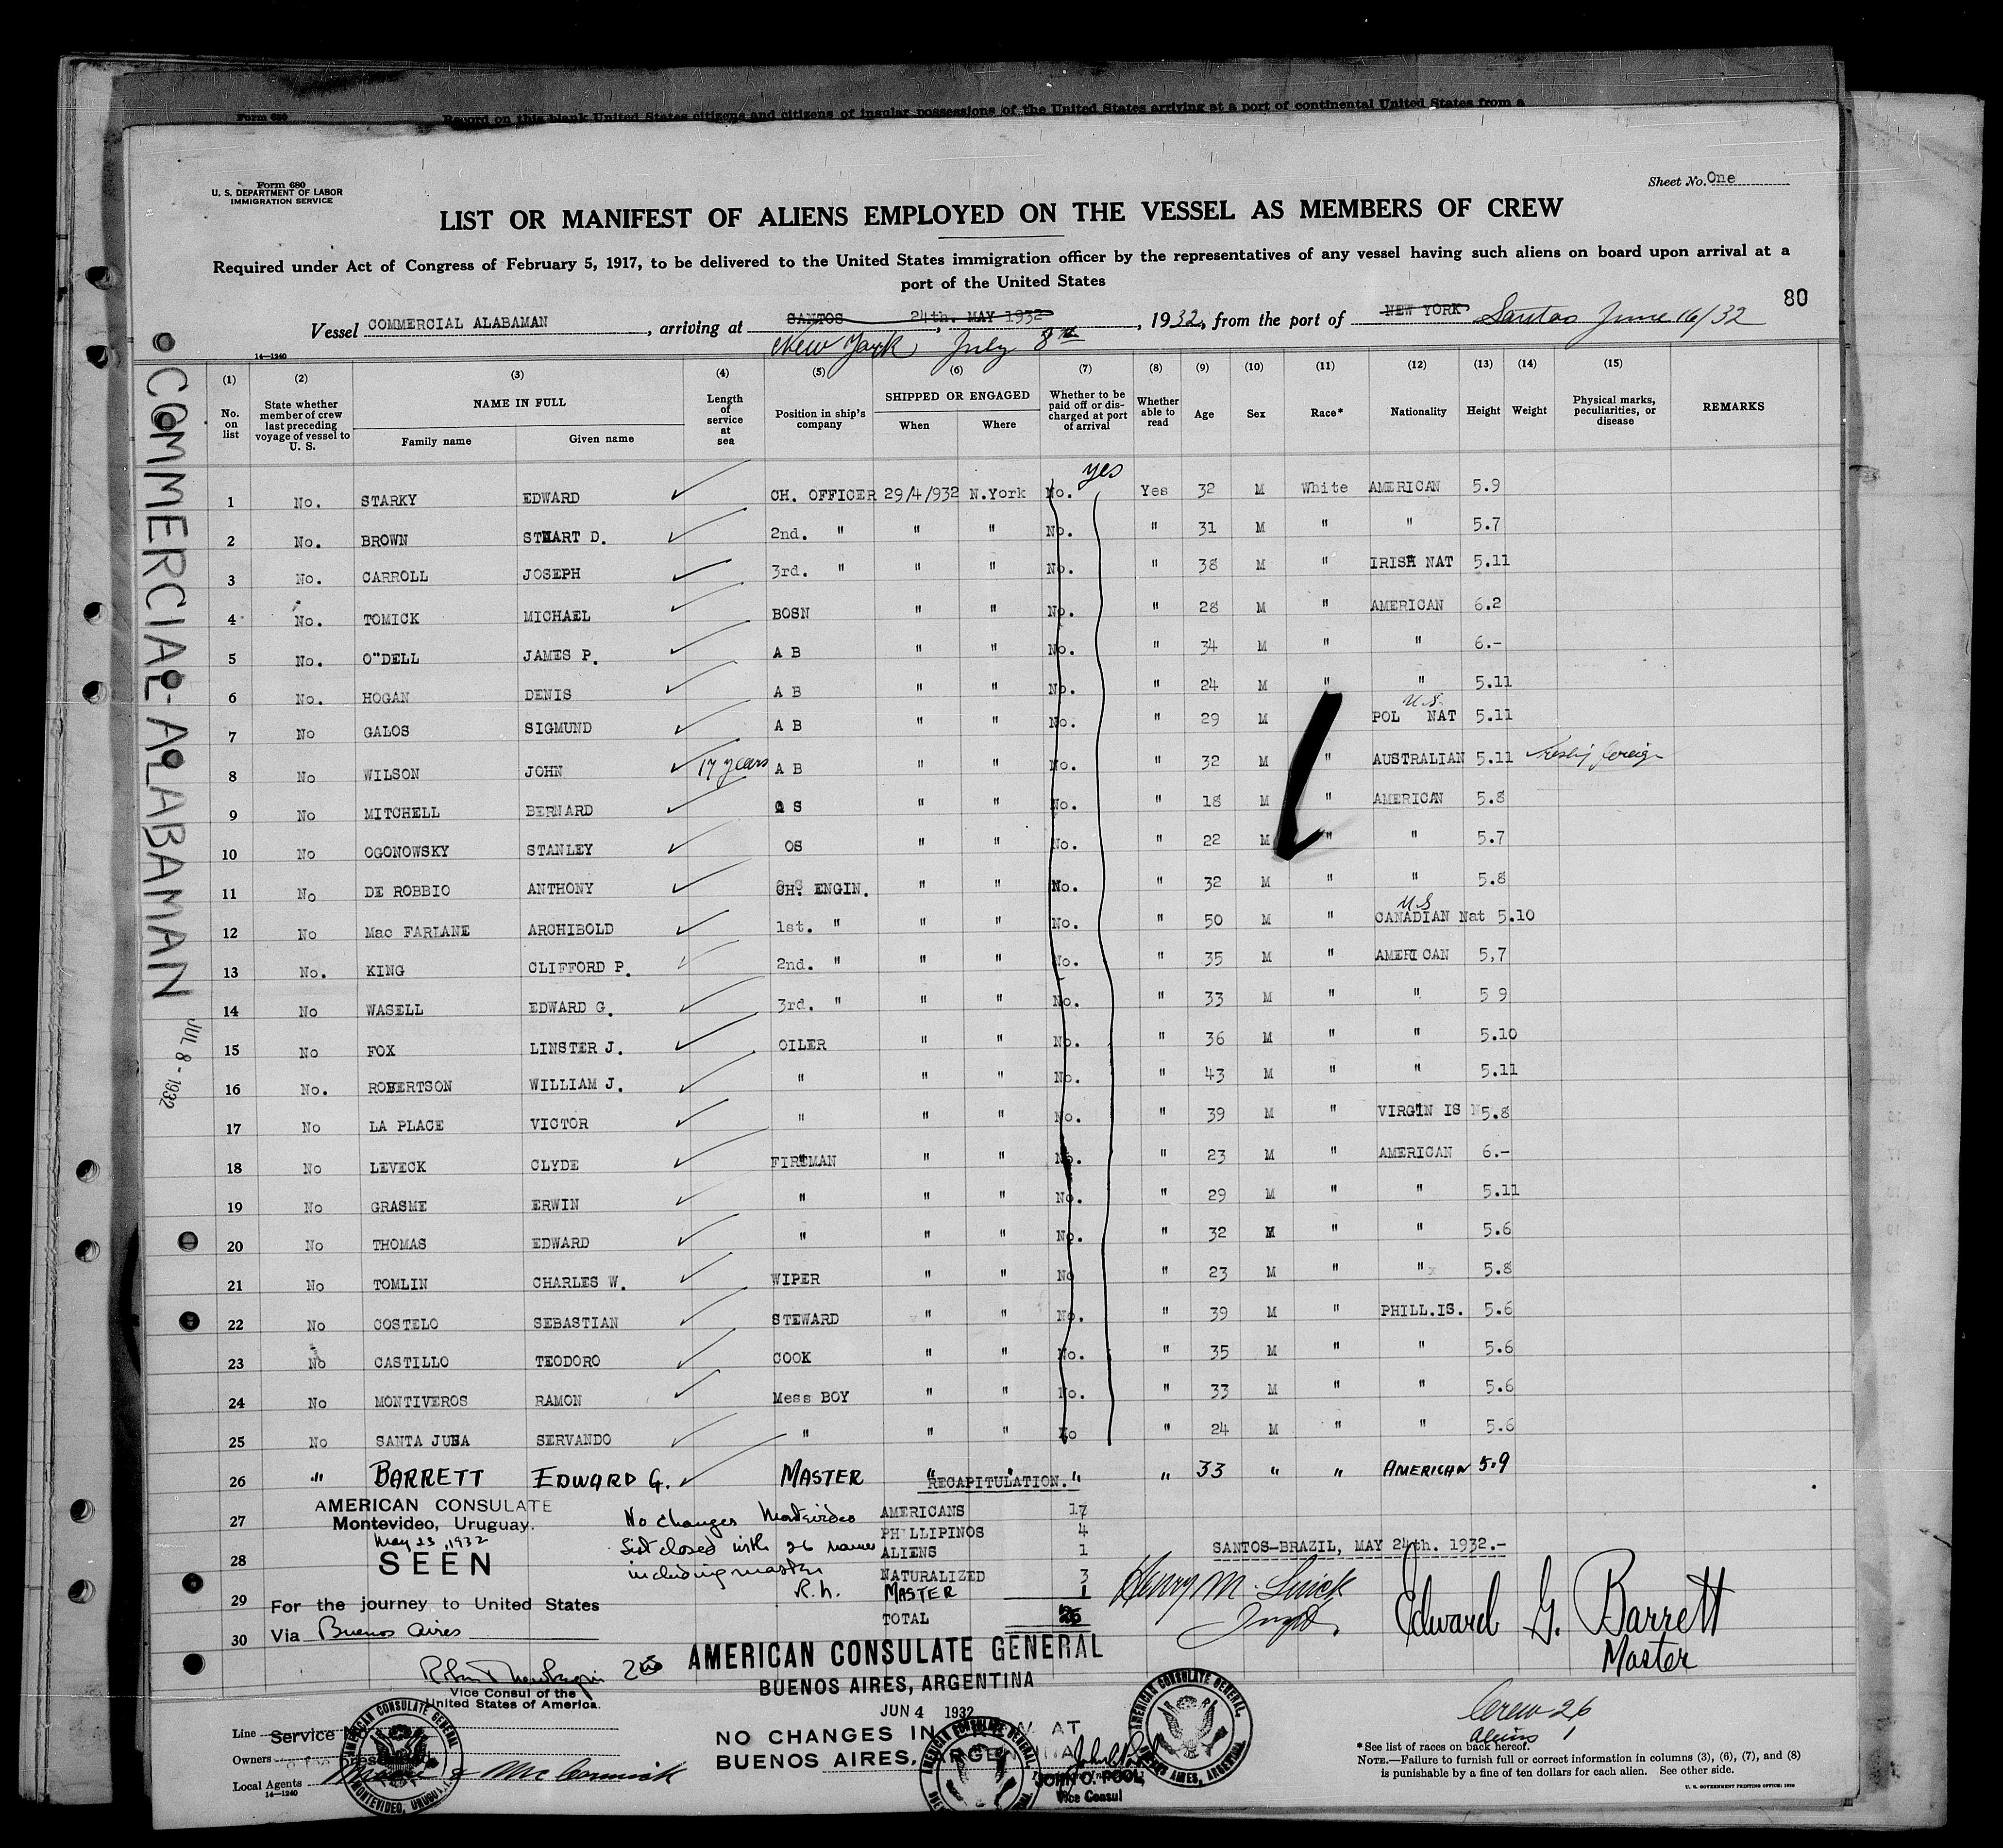 Form 630
Record on this blank United States citizens and citizens of insular possessions of the United States arriving at a port of continental United States from a
Form 680
U. S. DEPARTMENT OF LABOR
IMMIGRATION SERVICE
Sheet No. One
LIST OR MANIFEST OF ALIENS EMPLOYED ON THE VESSEL AS MEMBERS OF CREW
Required under Act of Congress of February 5, 1917, to be delivered to the United States immigration officer by the representatives of any vessel having such aliens on board upon arrival at a
port of the United States
80
Vessel COMMERCIAL ALABAMAN, arriving at SANTOS 24th. MAY 1932, 1932, from the port of NEW YORK Santos June 16/32
New York July 8th
14—1240
(1) (2) (3) (4) (5) (6) (7) (8) (9) (10) (11) (12) (13) (14) (15)
No. on list
State whether member of crew last preceding voyage of vessel to U. S.
NAME IN FULL
Family name
Given name
Length of service at sea
Position in ship's company
SHIPPED OR ENGAGED
When
Where
Whether to be paid off or discharged at port of arrival
Whether able to read
Age
Sex
Race*
Nationality
Height
Weight
Physical marks, peculiarities, or disease
REMARKS
yes
1 No. STARKY EDWARD CH. OFFICER 29/4/932 N.York No. Yes 32 M White AMERICAN 5.9
2 No. BROWN STUART D. 2nd. " " " No. " 31 M " " 5.7
3 No. CARROLL JOSEPH 3rd. " " " No. " 38 M " IRISH NAT 5.11
4 No. TOMICK MICHAEL BOSN " " No. " 28 M " AMERICAN 6.2
5 No. O"DELL JAMES P. A B " " No. " 34 M " " 6.-
6 No. HOGAN DENIS A B " " No. " 24 M " " 5.11
U.S.
7 No GALOS SIGMUND A B " " No. " 29 M POL NAT 5.11
8 No WILSON JOHN 17 years A B " " No. " 32 M " AUSTRALIAN 5.11
9 No MITCHELL BERNARD O S " " No. " 18 M " AMERICAN 5.8
10 No OGONOWSKY STANLEY OS " " No. " 22 M " " 5.7
11 No DE ROBBIO ANTHONY CH. ENGIN. " " No. " 32 M " " 5.8
U.S
12 No Mac FARLANE ARCHIBOLD 1st. " " " No. " 50 M " CANADIAN Nat 5.10
13 No. KING CLIFFORD P. 2nd. " " " No. " 35 M " AMERICAN 5,7
14 No WASELL EDWARD G. 3rd. " " " No. " 33 M " " 5 9
15 No FOX LINSTER J. OILER " " No. " 36 M " " 5.10
16 No. ROBERTSON WILLIAM J. " " " No. " 43 M " " 5.11
17 No LA PLACE VICTOR " " " No. " 39 M " VIRGIN IS N 5.8
18 No LEVECK CLYDE FIREMAN " " No. " 23 M " AMERICAN 6.-
19 No GRASME ERWIN " " " No. " 29 M " " 5.11
20 No THOMAS EDWARD " " " No. " 32 M " " 5.6
21 No TOMLIN CHARLES W. WIPER " " No " 23 M " " 5.8
22 No COSTELO SEBASTIAN STEWARD " " No. " 39 M " PHILL.IS. 5.6
23 No CASTILLO TEODORO COOK " " No. " 35 M " " 5.6
24 No MONTIVEROS RAMON Mess BOY " " No. " 33 M " " 5.6
25 No SANTA JUNA SERVANDO " " " No " 24 M " " 5.6
26 " BARRETT EDWARD G. MASTER " " " " 33 " " AMERICAN 5.9
27
28
29
30
COMMERCIAL-ALABAMAN
JUL 8 - 1932
AMERICAN CONSULATE
Montevideo, Uruguay.
May 23, 1932
SEEN
For the journey to United States
Via Buenos Aires
Vice Consul of the
United States of America.
No changes Montevideo
List closed with 26 names
including master
R.h.
RECAPITULATION.
AMERICANS 17
PHILLIPINOS 4
ALIENS 1
NATURALIZED 3
MASTER 1
TOTAL 26
SANTOS-BRAZIL, MAY 24th. 1932.-
Edward G. Barrett
Master
AMERICAN CONSULATE GENERAL
BUENOS AIRES, ARGENTINA
JUN 4 1932
NO CHANGES IN CREW AT
BUENOS AIRES, ARGENTINA
JOHN O. POOL
Vice Consul
AMERICAN CONSULATE GENERAL, BUENOS AIRES, ARGENTINA
AMERICAN CONSULATE GENERAL MONTEVIDEO, URUGUAY
Line
Service
Owners
Local Agents Moore & McCormick
14—1240
Crew 26
Aliens 1
*See list of races on back hereof.
NOTE.—Failure to furnish full or correct information in columns (3), (6), (7), and (8)
is punishable by a fine of ten dollars for each alien. See other side.
U. S. GOVERNMENT PRINTING OFFICE: 1930